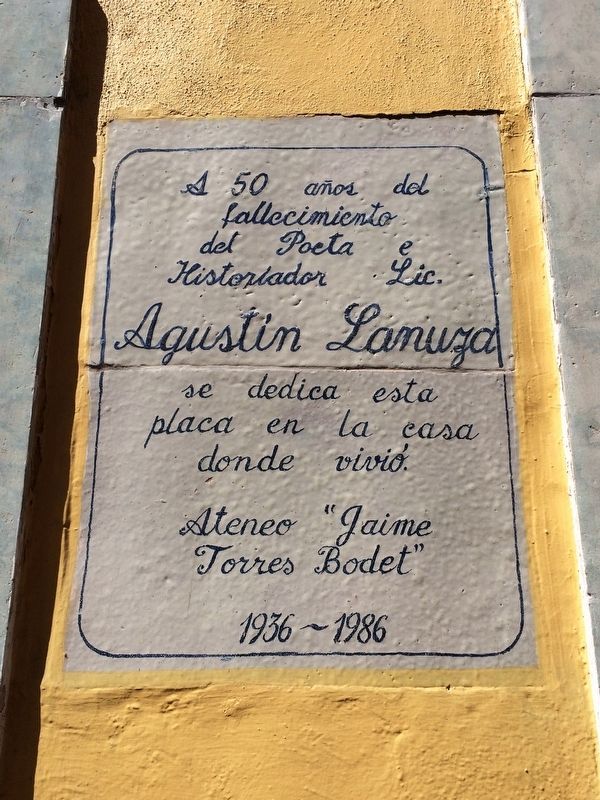 A 50 años del
fallecimiento
del Poeta e
Historiador Lic.
Agustín Lanuza
se dedica esta
placa en la casa
donde vivió.
Ateneo "Jaime
Torres Bodet"
1936 ~ 1986